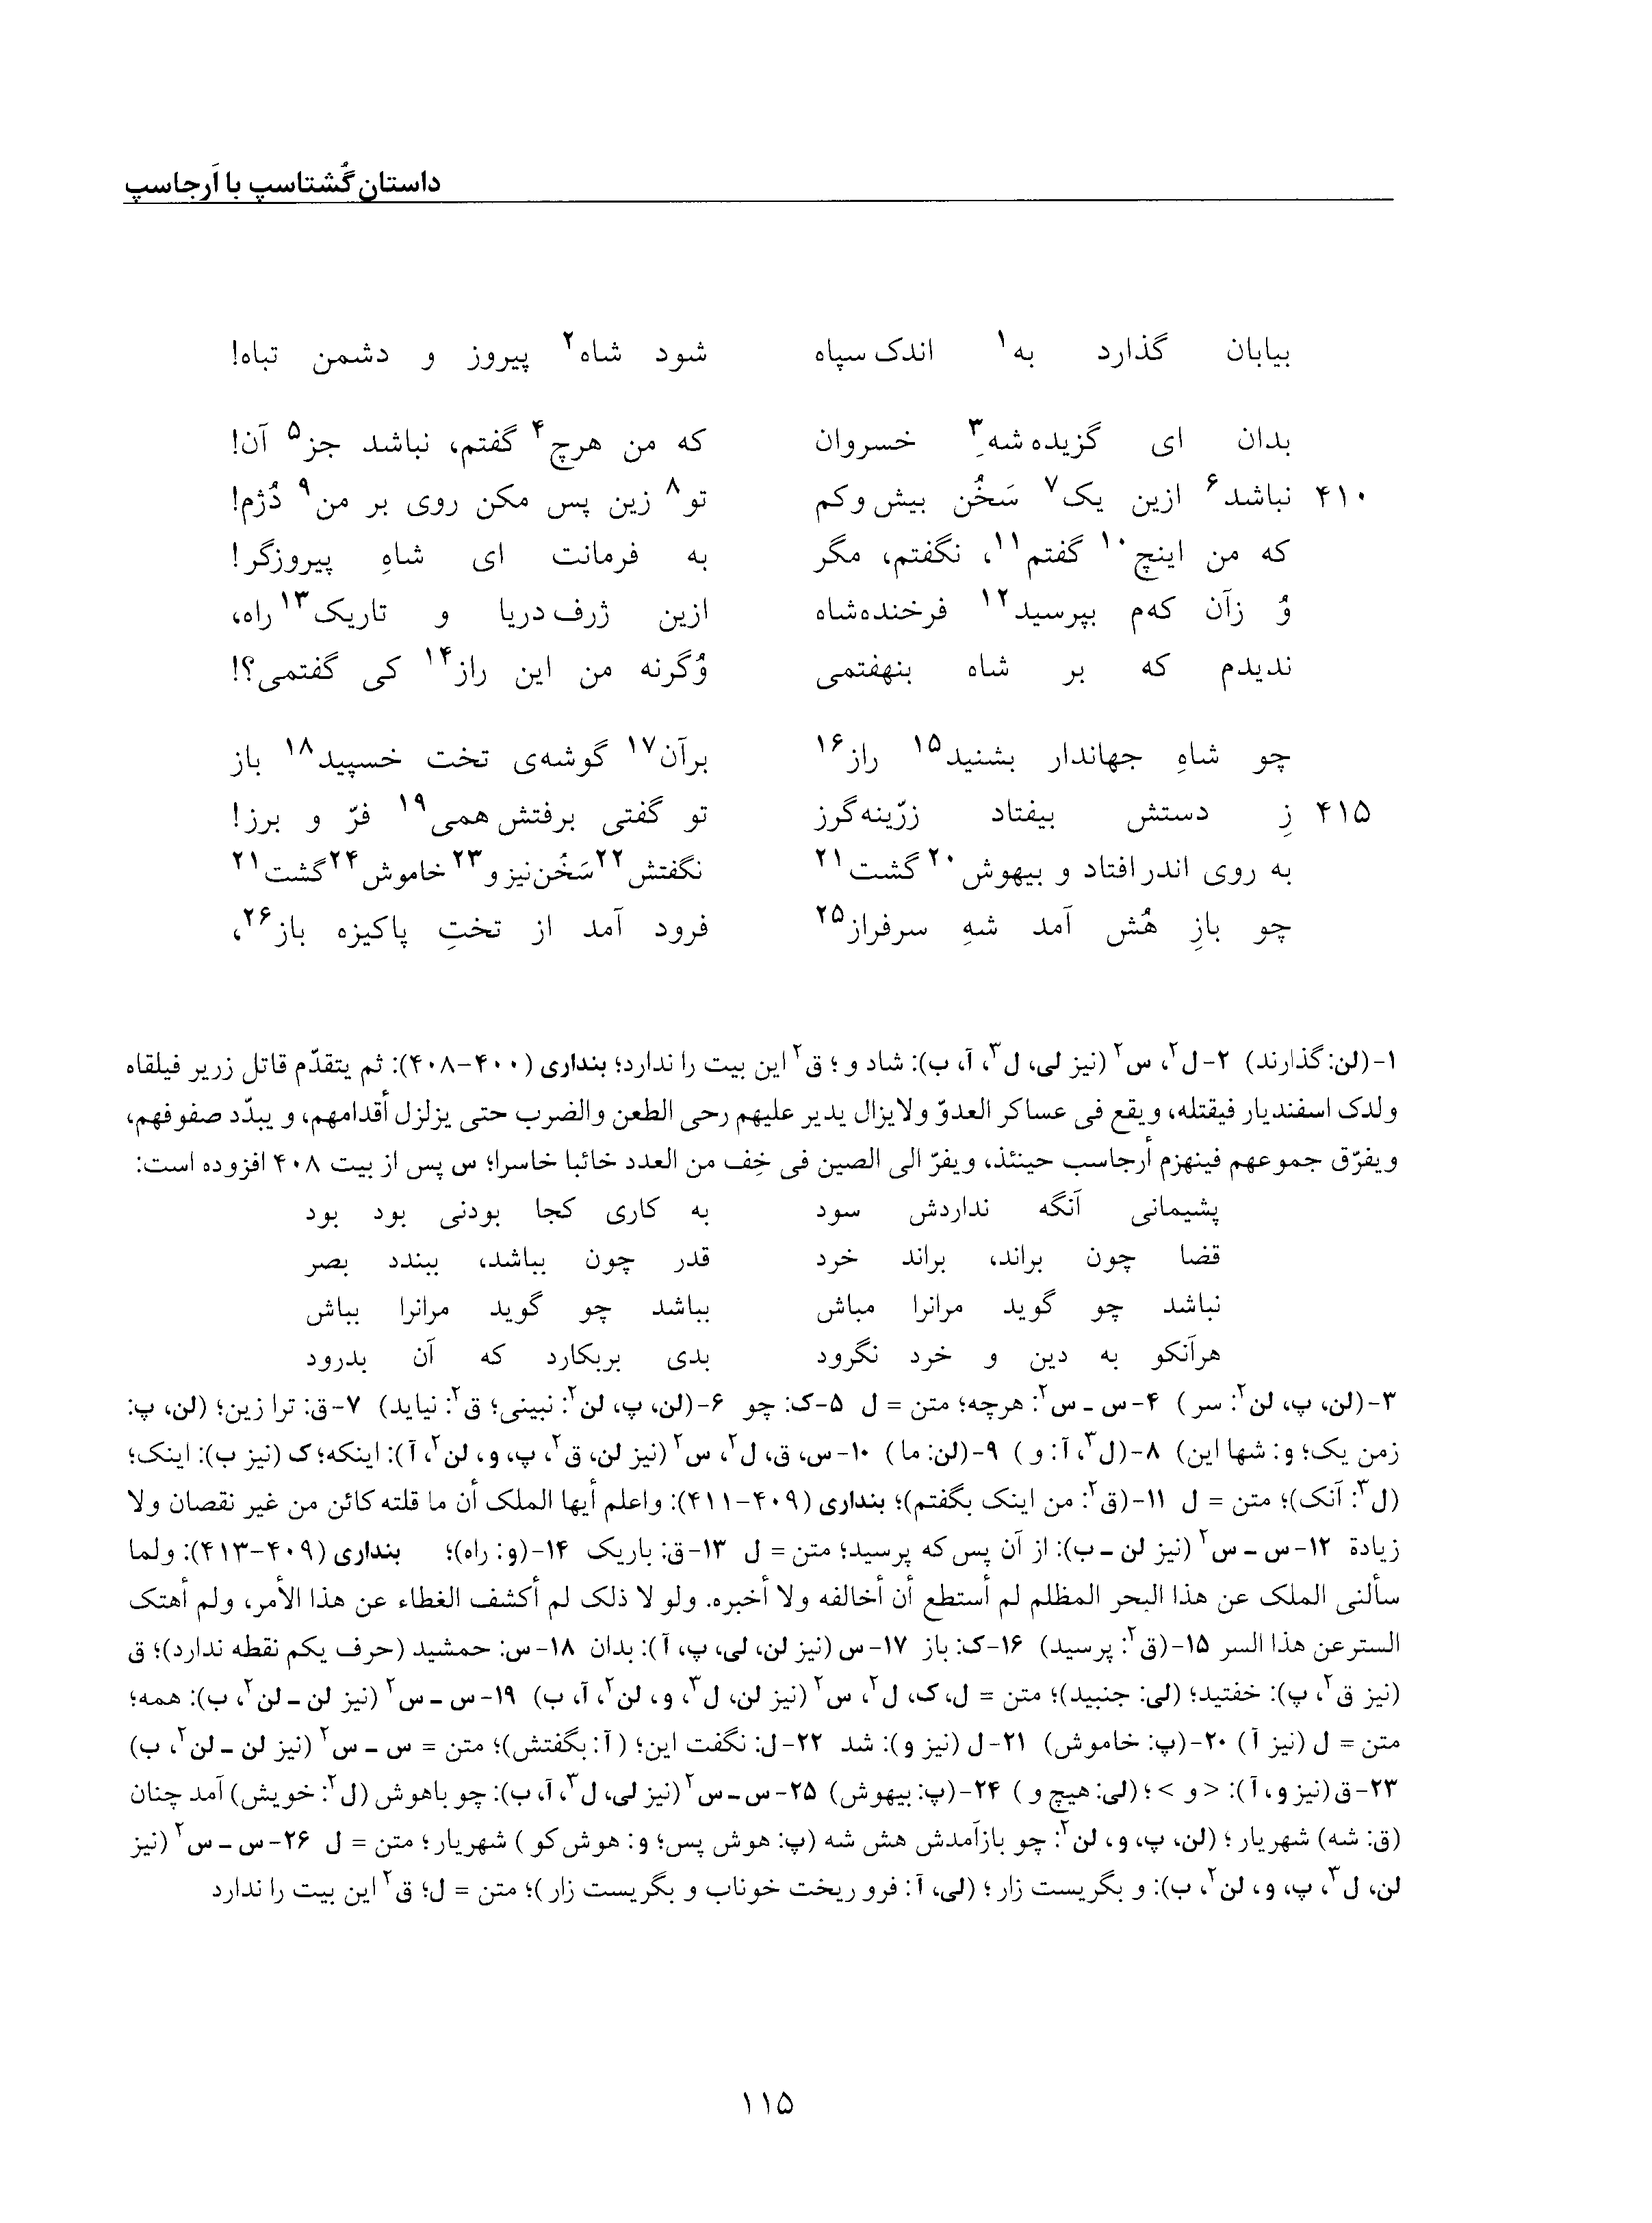 داستان گُشتاسپ با اَرجاسپ
بیابان گذارد به۱ اندک سپاه شود شاه۲ پیروز و دشمن تباه!
بدان ای گزیده شهِ۳ خسروان که من هرچ۴ گفتم، نباشد جز۵ آن!
۴۱۰ نباشد۶ ازین یک۷ سَخُن بیش و کم تو۸ زین پس مکن روی بر من۹ دُژم!
که من اینچ۱۰ گفتم۱۱، نگفتم، مگر به فرمانت ای شاهِ پیروزگر!
وُ زآن کهم بپرسید۱۲ فرخنده‌شاه ازین ژرف دریا و تاریک۱۳ راه،
ندیدم که بر شاه بنهفتمی وُگرنه من این راز۱۴ کی گفتمی؟!
چو شاهِ جهاندار بشنید۱۵ راز۱۶ برآن۱۷ گوشه‌ی تخت خسپید۱۸ باز
۴۱۵ زِ دستش بیفتاد زرّینه گرز تو گفتی برفتش همی۱۹ فرّ و برز!
به روی اندر افتاد و بیهوش۲۰ گشت۲۱ نگفتش۲۲ سَخُن نیز و۲۳ خاموش۲۴ گشت۲۱
چو بازِ هُش آمد شهِ سرفراز۲۵ فرود آمد از تختِ پاکیزه باز۲۶،
۱-(لن: گذارند) ۲-ل۲، س۲ (نیز لی، ل۳، آ، ب): شاد و؛ ق۲ این بیت را ندارد؛ بنداری (۴۰۰-۴۰۸): ثم یتقدّم قاتل زریر فیلقاه
ولدک اسفندیار فیقتله، ویقع فی عساکر العدوّ ولایزال یدیر علیهم رحی الطعن والضرب حتی یزلزل أقدامهم، و یبدّد صفوفهم،
ویفرّق جموعهم فینهزم أرجاسب حینئذ، ویفرّ الی الصین فی خِف من العدد خائبا خاسرا؛ س پس از بیت ۴۰۸ افزوده است:
پشیمانی آنگه نداردش سود به کاری کجا بودنی بود بود
قضا چون براند، براند خرد قدر چون بباشد، ببندد بصر
نباشد چو گوید مرانرا مباش بباشد چو گوید مرانرا بباش
هرآنکو به دین و خرد نگرود بدی بربکارد که آن بدرود
۳-(لن، پ، لن۲: سر) ۴-س ـ س۲: هرچه؛ متن = ل ۵-ک: چو ۶-(لن، پ، لن۲: نبینی؛ ق۲: نیاید) ۷-ق: ترا زین؛ (لن، پ:
زمن یک؛ و: شها این) ۸-(ل۳، آ: و) ۹-(لن: ما) ۱۰-س، ق، ل۲، س۲ (نیز لن، ق۲، پ، و، لن۲، آ): اینکه؛ ک (نیز ب): اینک؛
(ل۳: آنک)؛ متن = ل ۱۱-(ق۲: من اینک بگفتم)؛ بنداری (۴۰۹-۴۱۱): واعلم أیها الملک أن ما قلته کائن من غیر نقصان ولا
زیادة ۱۲-س ـ س۲ (نیز لن ـ ب): از آن پس که پرسید؛ متن = ل ۱۳-ق: باریک ۱۴-(و: راه)؛ بنداری (۴۰۹-۴۱۳): ولما
سألنی الملک عن هذا البحر المظلم لم أستطع أن أخالفه ولا أخبره. ولو لا ذلک لم أکشف الغطاء عن هذا الأمر، ولم أهتک
الستر عن هذا السر ۱۵-(ق۲: پرسید) ۱۶-ک: باز ۱۷-س (نیز لن، لی، پ، آ): بدان ۱۸-س: حمشید (حرف یکم نقطه ندارد)؛ ق
(نیز ق۲، پ): خفتید؛ (لی: جنبید)؛ متن = ل، ک، ل۲، س۲ (نیز لن، ل۳، و، لن۲، آ، ب) ۱۹-س ـ س۲ (نیز لن ـ لن۲، ب): همه؛
متن = ل (نیز آ) ۲۰-(پ: خاموش) ۲۱-ل (نیز و): شد ۲۲-ل: نگفت این؛ (آ: بگفتش)؛ متن = س ـ س۲ (نیز لن ـ لن۲، ب)
۲۳-ق (نیز و، آ): <و>؛ (لی: هیچ و) ۲۴-(پ: بیهوش) ۲۵-س ـ س۲ (نیز لی، ل۳، آ، ب): چو باهوش (ل۲: خویش) آمد چنان
(ق: شه) شهریار؛ (لن، پ، و، لن۲: چو بازآمدش هش شه (پ: هوش پس؛ و: هوش کو) شهریار؛ متن = ل ۲۶-س ـ س۲ (نیز
لن، ل۳، پ، و، لن۲، ب): و بگریست زار؛ (لی، آ: فرو ریخت خوناب و بگریست زار)؛ متن = ل؛ ق۲ این بیت را ندارد
۱۱۵